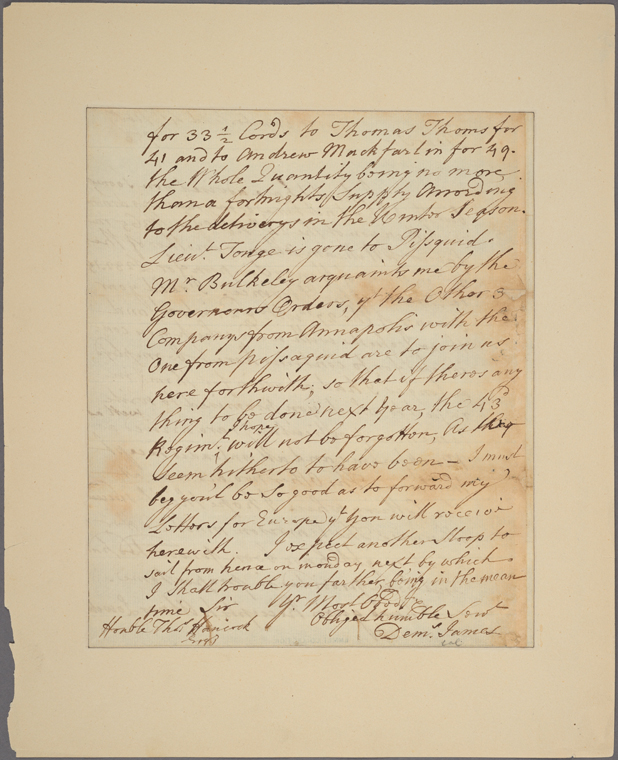 for 33 1/2 Cords to Thomas Thoms for
41 and to Andrew Mackfarlin for 49.
the Whole Quantity being no more
than a fortnights Supply According
to the deliverys in the Winter Season.
Lieut. Tonge is gone to Pissquid.
Mr. Bulkeley acquaints me by the
Governours Orders, yt the Other 3
Companys from Annapolis with the
One from pissaquid are to join us
here forthwith; so that if theres any
thing to be done next Year, the 43d
Regimt. I hope will not be forgotten, As they
Seem hitherto to have been - I must
beg you'l be So good as to forward my
Letters for Europe yt You will receive
herewith. I expect another Sloop to
sail from hence on monday next by which
I Shall trouble you farther, being in the mean
time Sir Yr. Most Obedt.
Obliged humble Servt
Honble Thos. Hancock
Demr. James